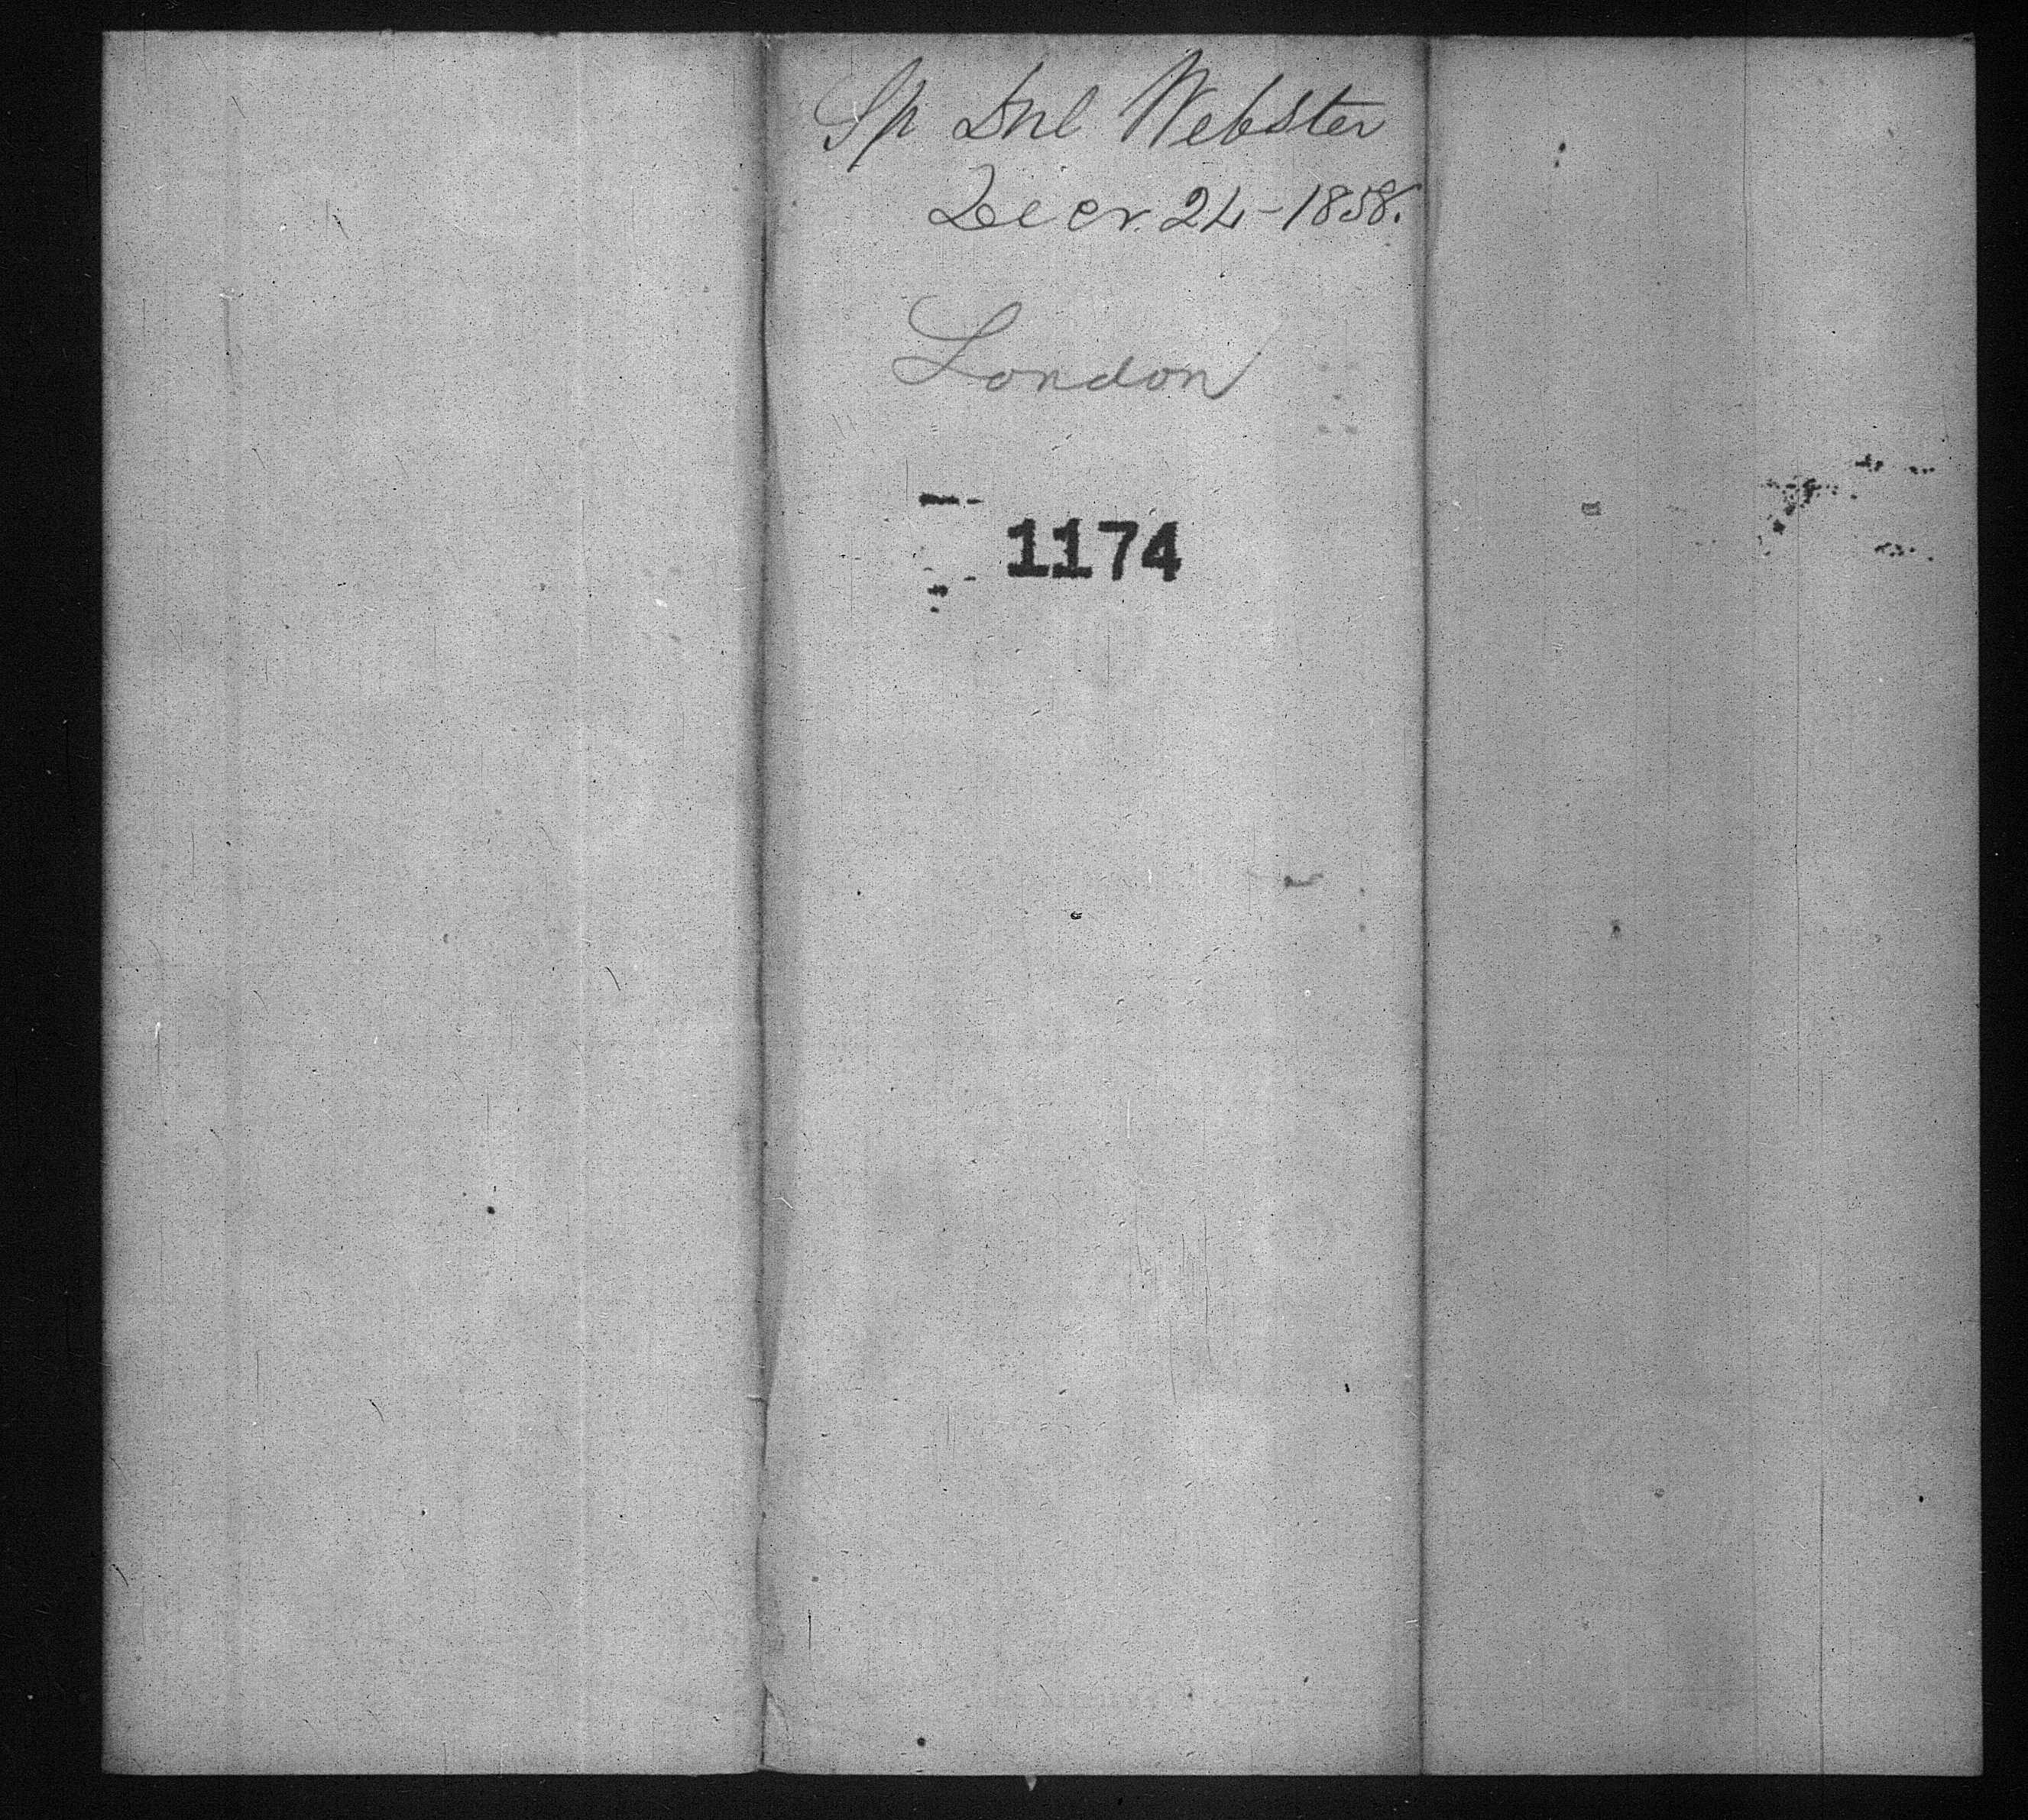 Sp Dnl Webster
Decr. 24-1858.
London
1174